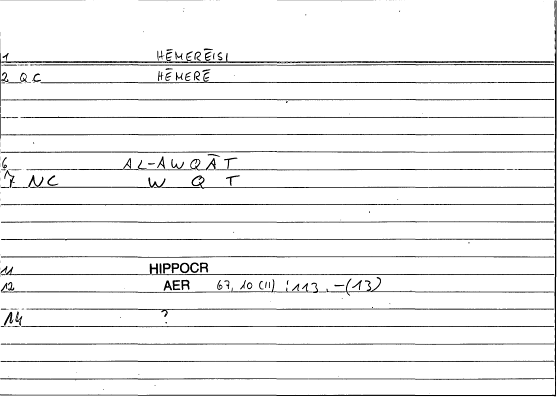 1 HĒMERĒISI
2 QC HĒMERĒ
6 AL-AWQĀT
7 NC W Q T
11 HIPPOCR
12 AER 67, 10 (11) :113. -(13)
14 ?